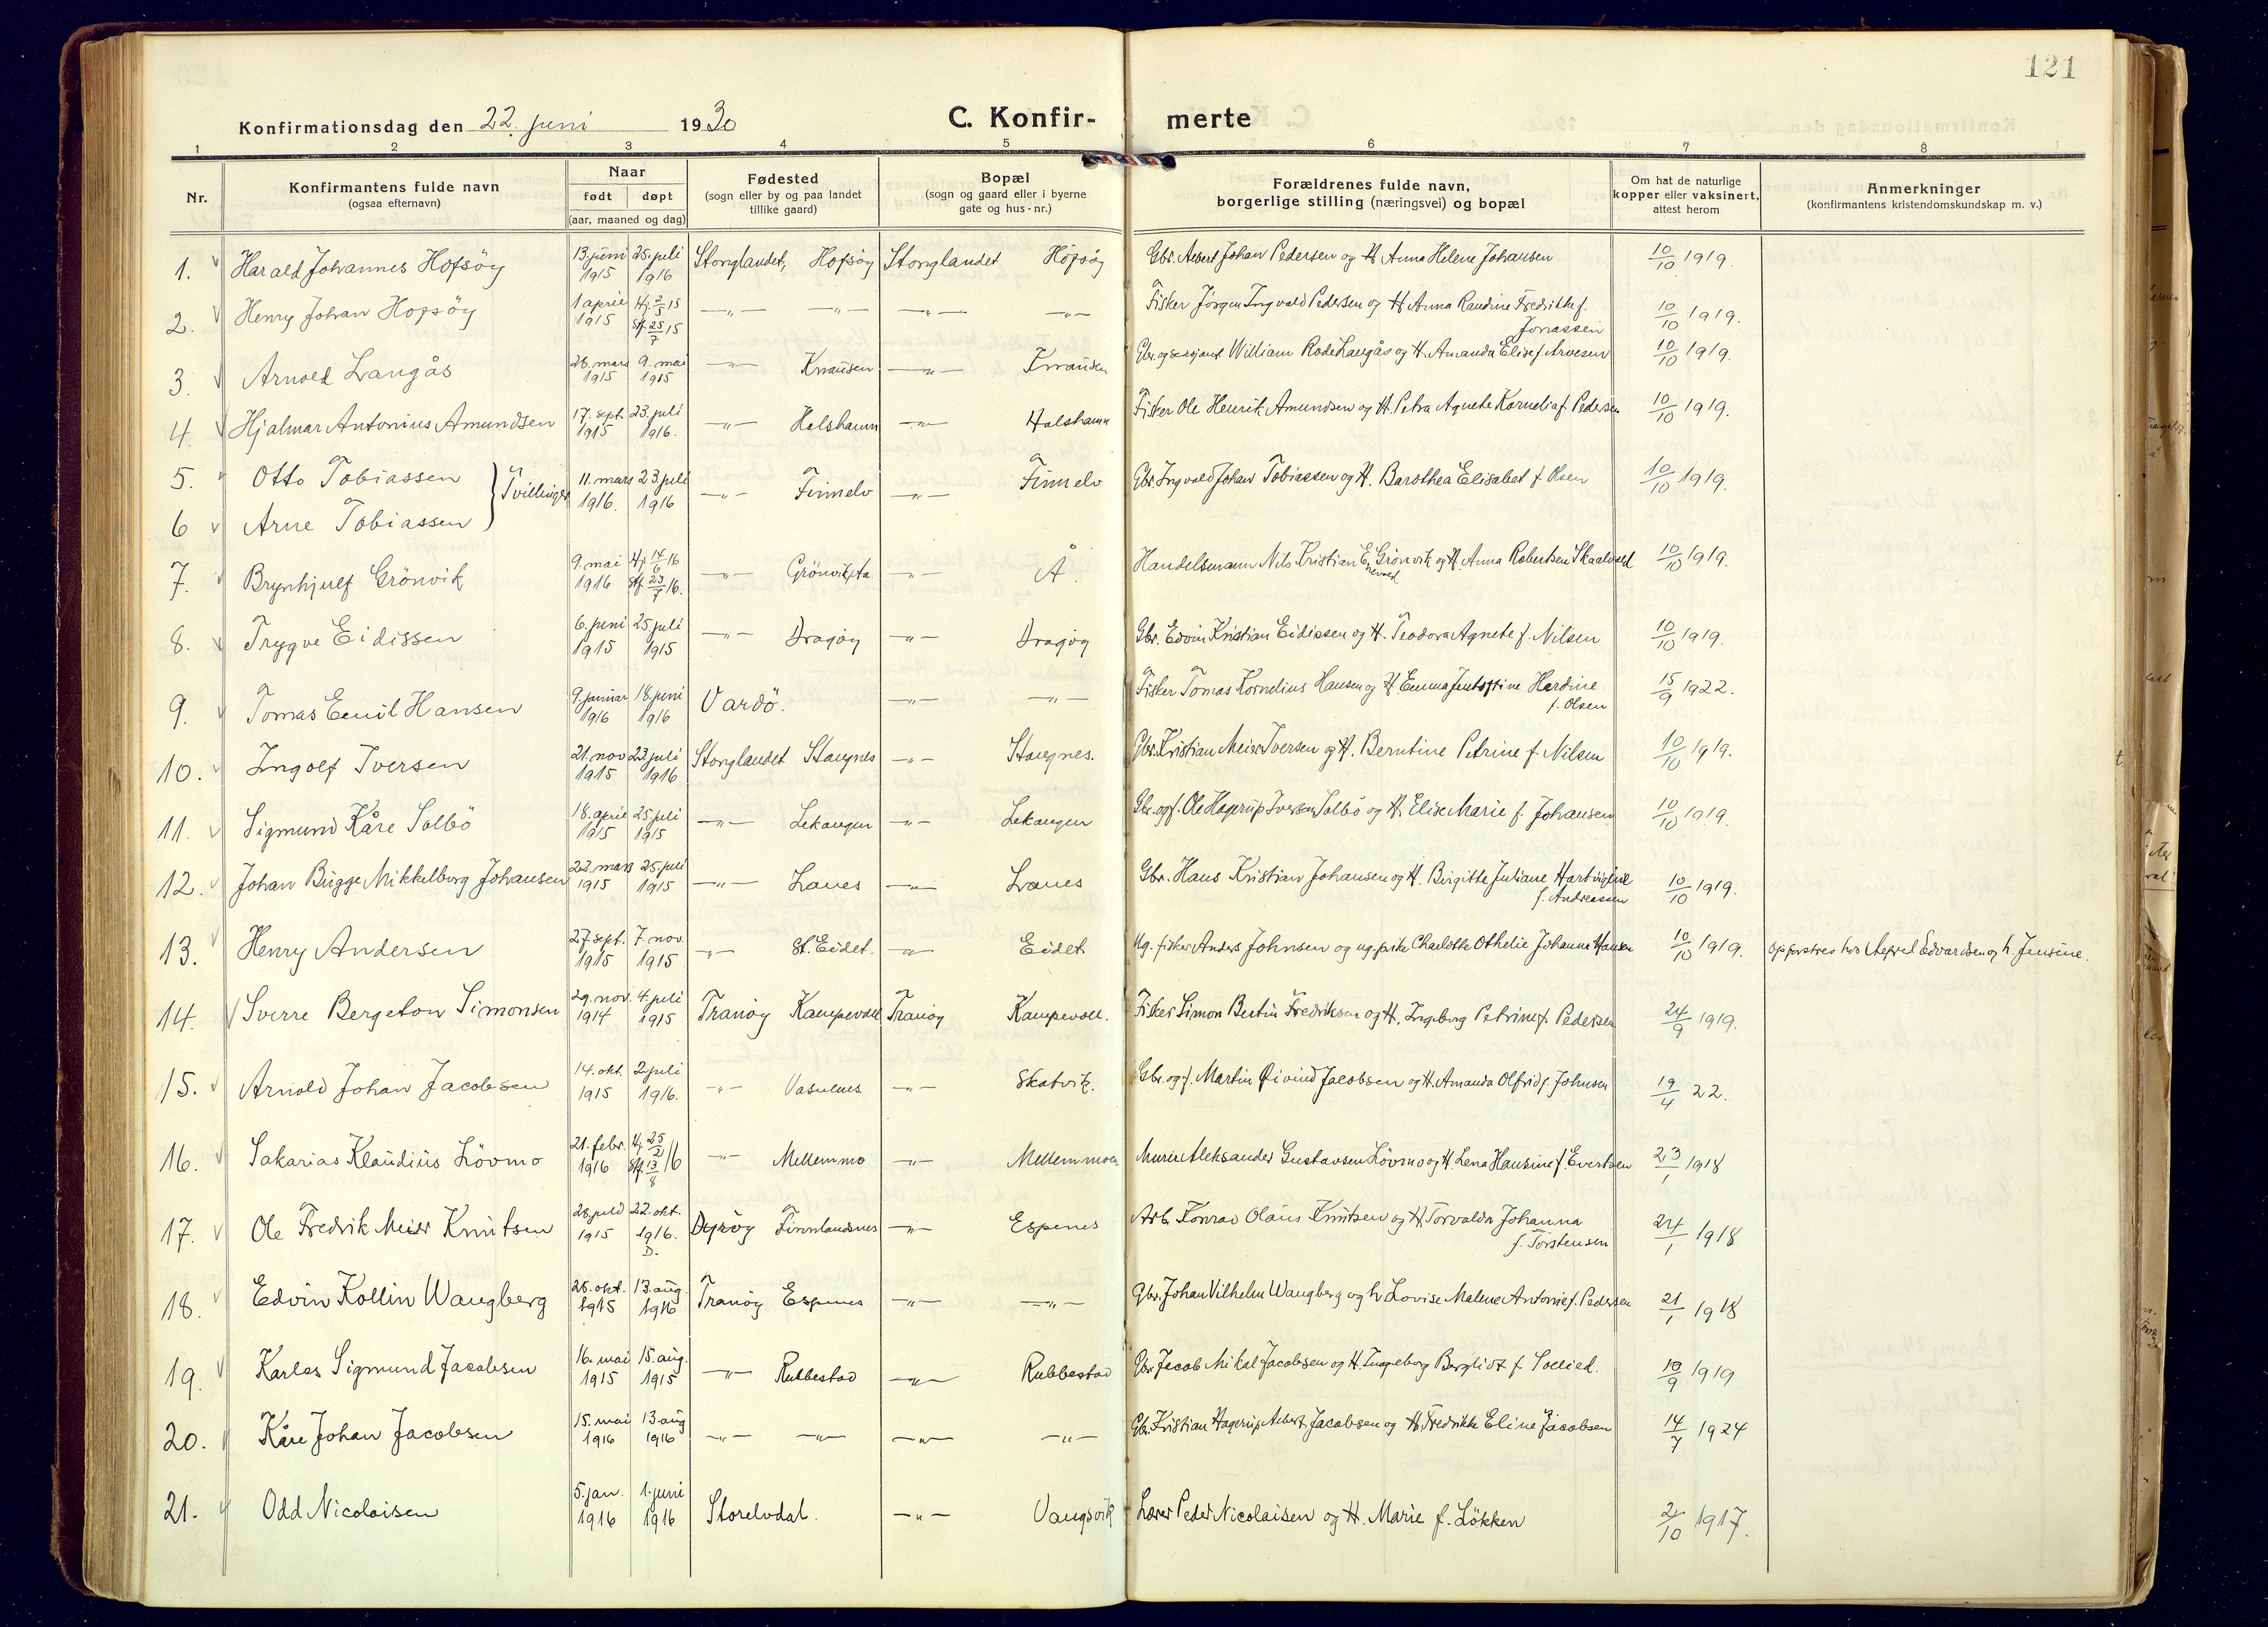 121
Konfirmationsdag den 22. juni 1930 C. Konfir- merte
1 2 3 4 5 6 7 8
Nr. Konfirmantens fulde navn (ogsaa efternavn) Naar født døpt (aar, maaned og dag) Fødested (sogn eller by og paa landet tillike gaard) Bopæl (sogn og gaard eller i byerne gate og hus-nr.) Forældrenes fulde navn, borgerlige stilling (næringsvei) og bopæl Om hat de naturlige kopper eller vaksinert, attest herom Anmerkninger (konfirmantens kristendomskundskap m. v.)
1. Harald Johannes Hofsöy 13. juni 1915 25. juli 1916 Stonglandet, Hofsöy Stonglandet Hofsöy Gbr. Albert Johan Pedersen og H. Anna Helene Johansen 10/10 1919.
2. Henry Johan Hofsöy 1 april 1915 Hj. 2/5 15 Stf. 25/7 15 —"— —"— —"— —"— Fisker Jörgen Ingvald Pedersen og H. Anna Randine Fredrikke f. Jonassen 10/10 1919.
3. Arnold Langås 26. mars 1915 9. mai 1915 —"— Knausen —"— Knausen Gbr. og sersjant William Rode Langås og H. Amanda Elise f. Arvesen 10/10 1919.
4. Hjalmar Antonius Amundsen 17. sept. 1915 23. juli 1916. —"— Halshamn —"— Halshamn Fisker Ole Henrik Amundsen og H. Petra Agnete Kornelia f. Pedersen 10/10 1919.
5. Otto Tobiassen } Tvillinger 11. mars 1916. 23. juli 1916 —"— Finnelv —"— Finnelv Gbr. Ingvald Johan Tobiassen og H. Barothea Elisabet f. Olsen 10/10 1919.
6 Arne Tobiassen
7. Brynhjulf Grönvik 9. mai 1916 Hj. 14/6 16 Stf. 23/7 16. —"— Grönvik, Aa. —"— Å. Handelsmann Nils Kristian Enevold Grönvik og H. Anna Robertsen Skaalvold 10/10 1919.
8. Trygve Eidissen 6. juni 1915 25 juli 1915 —"— Dragöy —"— Dragöy Gbr. Edvin Kristian Eidissen og H. Teodora Agnete f. Nilsen 10/10 1919.
9. Tomas Emil Hansen 9 januar 1916 18. juni 1916 Vardö. —"— —"— Fisker Tomas Kornelius Hansen og H. Emma Hardine f. Olsen 15/9 1922.
10. Ingolf Iversen 21. nov 1915 23. juli 1916 Stonglandet Stangnes —"— Stangnes. Gbr. Kristian Meier Iversen og H. Berntine Petrine f. Nilsen 10/10 1919.
11. Sigmund Kåre Solbö 18. april 1915 25. juli 1915 —"— Lekangen —"— Lekangen Gbr. og f. Ole Hagerup Iversen Solbö og H. Elise Marie f. Johansen 10/10 1919.
12. Johan Bugge Mikkelborg Johansen 22. mars 1915 25. juli 1915 —"— Lanes —"— Lanes Gbr. Hans Kristian Johansen og H. Birgitte Juliane Hartvigine f. Andreassen 10/10 1919.
13. Henry Andersen 27. sept. 1915 7. nov. 1915 —"— St. Eidet. —"— Eidet Ug. fisker Anders Johnsen og ug. pike Charlotte Othelie Johanne Hansen 10/10 1919. Opfostres hos Aksel Edvardsen og h. Jensine.
14. Sverre Bergeton Simonsen 29. nov. 1914 4. juli 1915 Tranöy Kampevoll Tranöy Kampevoll. Fisker Simon Bertin Fredriksen og H. Ingeborg Petrine f. Pedersen 24/9 1919.
15. Arnold Johan Jacobsen 14. okt. 1915 2 juli 1916. —"— Vasulnes. —"— Skatvik. Gbr. og f. Martin Øivind Jacobsen og H. Amanda Olfrid f. Johnsen 19/4 22.
16. Sakarias Klaudius Lövmo 21. febr. 1916 Hj. 25/2 Stf. 13/8 16 —"— Mellemmo —"— Mellemmoen Murer Aleksander Gustavsen Lövmo og H. Lena Hansine f. Evertsen 23/1 1918
17. Ole Fredrik Meier Knutsen 28. juli 1915 22. okt. 1916. D. Dyröy Finnlandsnes —"— Espenes Arb. Konrad Olaus Knutsen og H. Torvalda Johanna f. Torstensen 24/1 1918
18. Edvin Kollin Wangberg 28. okt. 1915 13. aug. 1916 Tranöy Espenes —"— —"— Gbr. Johan Vilhelm Wangberg og h Lovise Malene Antonie f. Pedersen 21/1 1918
19. Karles Sigmund Jacobsen 16. mai 1915 15. aug. 1915 —"— Rubbestad —"— Rubbestad Gbr. Jacob Mikal Jacobsen og H. Ingeborg Bergliot f. Sollied. 10/9 1919
20. Kåre Johan Jacobsen 15. mai 1916 13. aug 1916 —"— —"— —"— —"— Gbr. Kristian Hagerup Albert Jacobsen og H. Fredrikke Eline Jacobsen 14/7 1924
21. Odd Nicolaisen 5. jan. 1916 1. juni 1916 Storelvdal. —"— Vangsvik Lærer Peder Nicolaisen og H. Marie f. Lökken 2/10 1917.